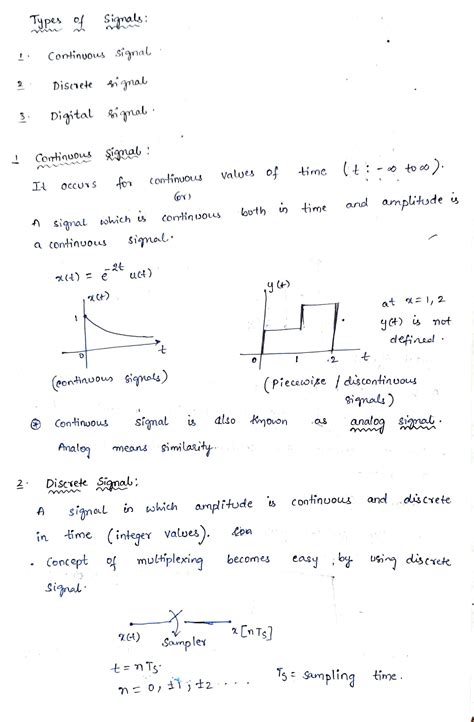 Types of Signals:
1. Continuous Signal
2. Discrete signal
3. Digital Signal.
1 Continuous Signal:
It occurs for continuous values of time (t: -∞ to ∞).
(or)
A signal which is continuous both in time and amplitude is
a continuous signal.
x(t) = e^-2t u(t)
x(t)
1
0
t
(continuous signals)
y(t)
0
1
2
t
(piecewise / discontinuous
signals)
at x=1, 2
y(t) is not
defined.
⊛ Continuous signal is also known as analog signal.
Analog means similarity.
2. Discrete Signal:
A signal in which amplitude is continuous and discrete
in time (integer values).
• Concept of multiplexing becomes easy, by using discrete
signal.
x(t)
Sampler
x[nTs]
t = nTs.
n = 0, ±1, ±2 ....
Ts = sampling time.